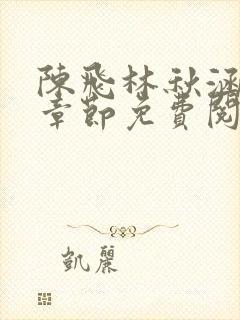 陳飛林秋涵
章節免費閱
凱麗